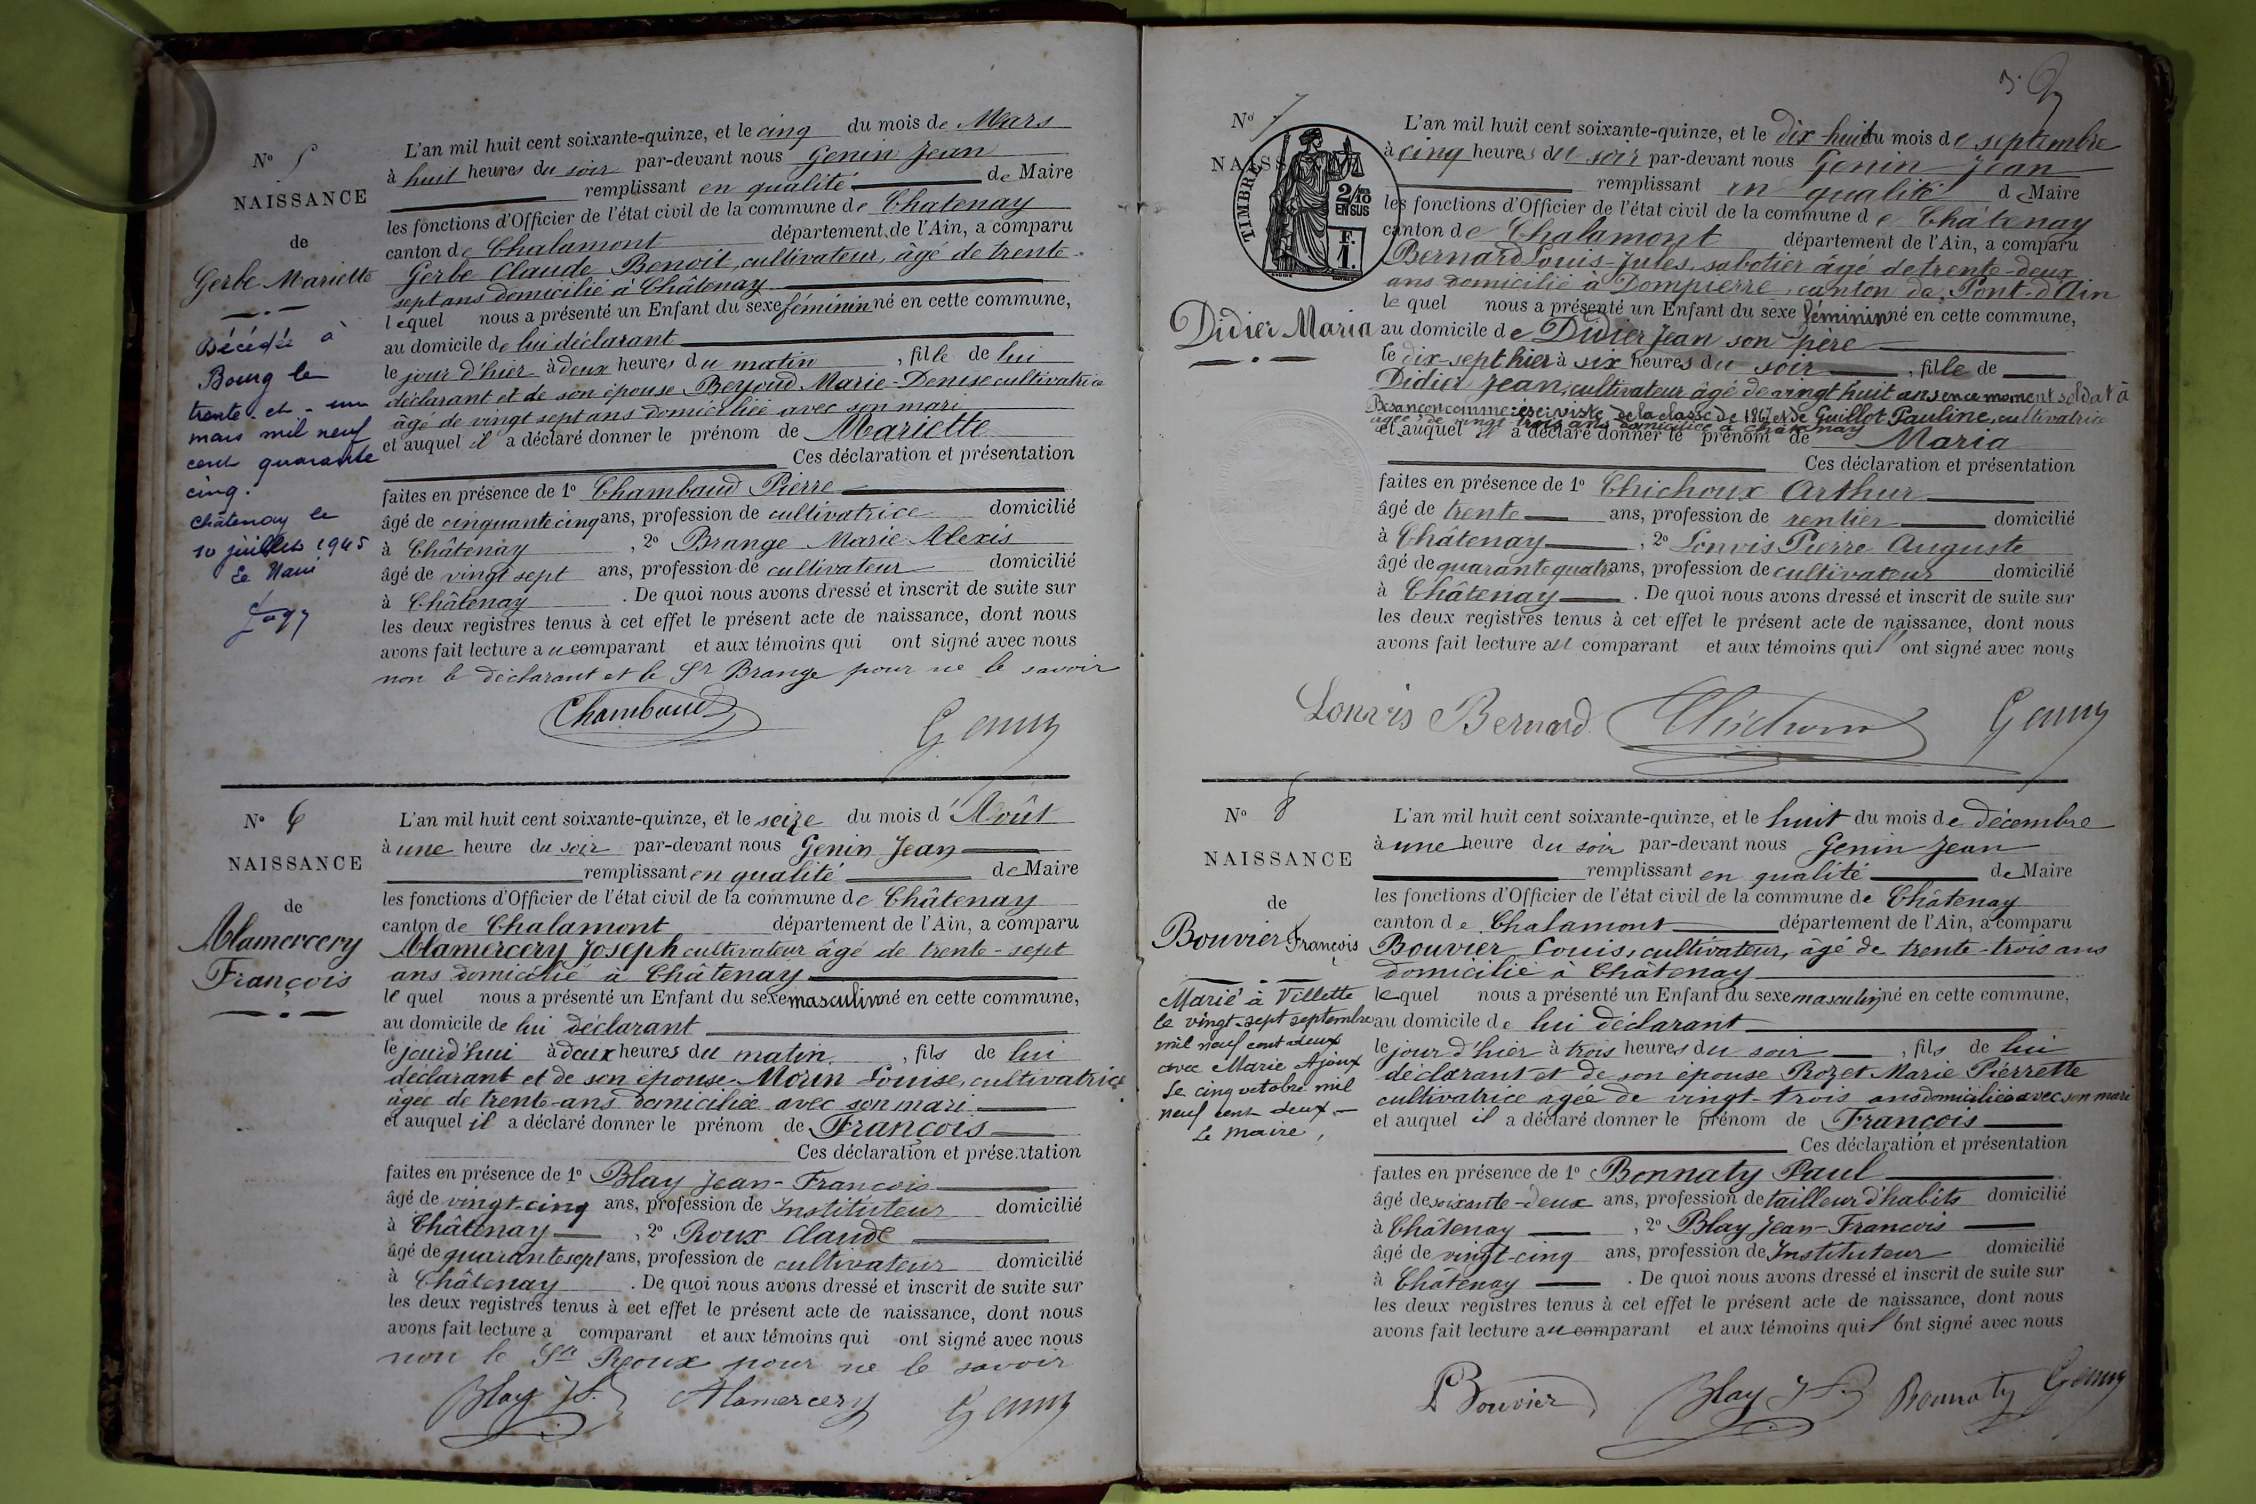 N° 5
NAISSANCE
de
Gerbe Mariette
Décédée à
Bourg le
trente-et-un
mars mil neuf
cent quarante
cinq.
Châtenay le
10 juillet 1945
Le Maire
L'an mil huit cent soixante-quinze, et le cinq du mois de Mars
à huit heures du soir par-devant nous Genin Jean
remplissant en qualité de Maire
les fonctions d'Officier de l'état civil de la commune de Chatenay
canton de Chalamont département de l'Ain, a comparu
Gerbe Claude Benoit, cultivateur, âgé de trente-
sept ans domicilié à Châtenay
lequel nous a présenté un Enfant du sexe féminin né en cette commune,
au domicile de lui déclarant
le jour d'hier à deux heures du matin, fille de lui
déclarant et de son épouse Beyoud Marie-Denise cultivatrice
âgé de vingt sept ans domiciliée avec son mari
et auquel il a déclaré donner le prénom de Mariette
Ces déclaration et présentation
faites en présence de 1° Chambaud Pierre
âgé de cinquante cinq ans, profession de cultivatrice domicilié
à Châtenay, 2° Brange Marie Alexis
âgé de vingt sept ans, profession de cultivateur domicilié
à Châtenay. De quoi nous avons dressé et inscrit de suite sur
les deux registres tenus à cet effet le présent acte de naissance, dont nous
avons fait lecture au comparant et aux témoins qui ont signé avec nous
non le déclarant et le Sr Brange pour ne le savoir
Chambaud Genin
N° 6
NAISSANCE
de
Alamercery
François
L'an mil huit cent soixante-quinze, et le seize du mois d'Août
à une heure du soir par-devant nous Genin Jean
remplissant en qualité de Maire
les fonctions d'Officier de l'état civil de la commune de Châtenay
canton de Chalamont département de l'Ain, a comparu
Alamercery Joseph cultivateur âgé de trente-sept
ans domicilié à Châtenay
lequel nous a présenté un Enfant du sexe masculin né en cette commune,
au domicile de lui déclarant
le jourd'hui à deux heures du matin, fils de lui
déclarant et de son épouse Morin Louise, cultivatrice
âgée de trente-ans domiciliée avec son mari
et auquel il a déclaré donner le prénom de François
Ces déclaration et présentation
faites en présence de 1° Blay Jean-François
âgé de vingt-cinq ans, profession de Instituteur domicilié
à Châtenay, 2° Roux Claude
âgé de quarante sept ans, profession de cultivateur domicilié
à Châtenay. De quoi nous avons dressé et inscrit de suite sur
les deux registres tenus à cet effet le présent acte de naissance, dont nous
avons fait lecture a comparant et aux témoins qui ont signé avec nous
non le Sr Roux pour ne le savoir
Blay J F. Alamercery Genin
N° 7
NAISS
TIMBRE
2/10
EN SUS
F.
1.
Didier Maria
L'an mil huit cent soixante-quinze, et le dix-huit du mois de septembre
à cinq heures du soir par-devant nous Genin Jean
remplissant en qualité de Maire
les fonctions d'Officier de l'état civil de la commune de Châtenay
canton de Chalamont département de l'Ain, a comparu
Bernard Louis-Jules, sabotier âgé de trente-deux
ans domicilié à Dompierre, canton de Pont-d'Ain
lequel nous a présenté un Enfant du sexe féminin né en cette commune,
au domicile de Didier Jean son père
le dix-sept hier à six heures du soir, fille de
Didier Jean, cultivateur âgé de vingt huit ans en ce moment soldat à
Besançon comme réserviste de la classe de 1867 et de Guillot Pauline, cultivatrice
âgée de vingt trois ans domiciliée à Châtenay
et auquel il a déclaré donner le prénom de Maria
Ces déclaration et présentation
faites en présence de 1° Chichoux Arthur
âgé de trente ans, profession de rentier domicilié
à Châtenay, 2° Lonvis Pierre Auguste
âgé de quarante quatre ans, profession de cultivateur domicilié
à Châtenay. De quoi nous avons dressé et inscrit de suite sur
les deux registres tenus à cet effet le présent acte de naissance, dont nous
avons fait lecture au comparant et aux témoins qui ont signé avec nous
Lonvis Bernard Chichoux Genin
N° 8
NAISSANCE
de
Bouvier François
Marié à Villette
le vingt-sept septembre
mil neuf cent deux
avec Marie Ajoux
Le cinq octobre mil
neuf cent deux
Le Maire,
L'an mil huit cent soixante-quinze, et le huit du mois de décembre
à une heure du soir par-devant nous Genin Jean
remplissant en qualité de Maire
les fonctions d'Officier de l'état civil de la commune de Châtenay
canton de Chalamont département de l'Ain, a comparu
Bouvier Louis, cultivateur, âgé de trente-trois ans
domicilié à Châtenay
lequel nous a présenté un Enfant du sexe masculin né en cette commune,
au domicile de lui déclarant
le jour d'hier à trois heures du soir, fils de lui
déclarant et de son épouse Rozet Marie Pierrette
cultivatrice âgée de vingt-trois ans domiciliée avec son mari
et auquel il a déclaré donner le prénom de François
Ces déclaration et présentation
faites en présence de 1° Bonnaty Paul
âgé de soixante-deux ans, profession de tailleur d'habits domicilié
à Châtenay, 2° Blay Jean-François
âgé de vingt-cinq ans, profession de Instituteur domicilié
à Châtenay. De quoi nous avons dressé et inscrit de suite sur
les deux registres tenus à cet effet le présent acte de naissance, dont nous
avons fait lecture au comparant et aux témoins qui ont signé avec nous
Bouvier Blay J F Bonnaty Genin